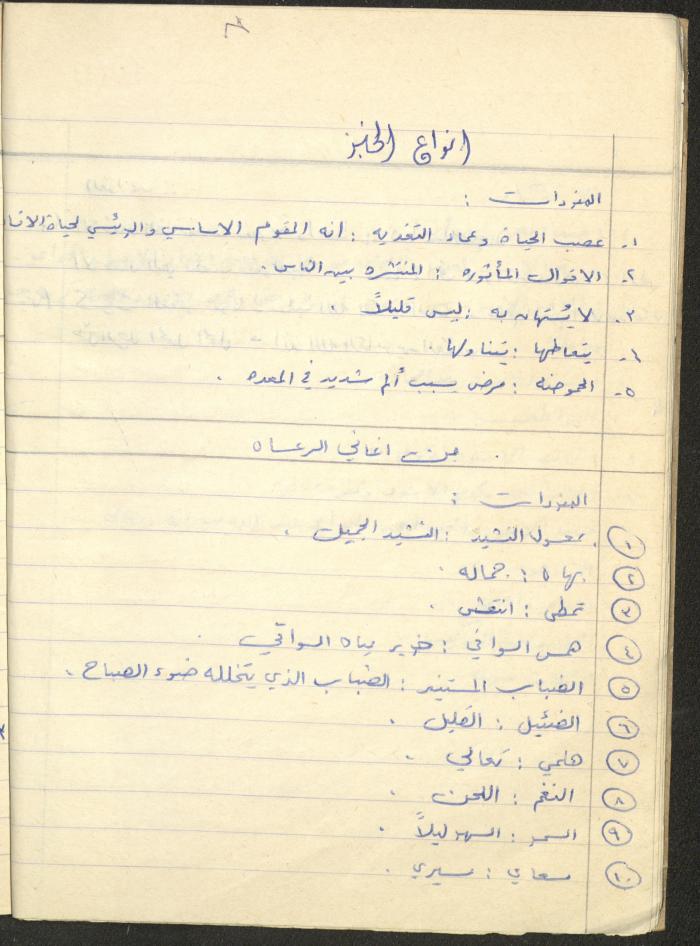 انواع الخبز
المفردات :
١- عصب الحياة وعماد التغذيه : انه المقوم الاساسي والرئيسي لحياة
٢- الاقوال المأثوره : المنتشره بين الناس .
٣- لا يُستهان به : ليس قليلاً .
٤- يتعاطها : يتناولها
٥- الحموضه : مرض يسبب ألم شديد في المعده .
من اغاني الرعاه
المفردات :
١ معسول النشيد : النشيد الجميل .
٢ بهاه : جماله .
٣ تمطى : انتعش .
٤ همس السواقي : خرير مياه السواقي .
٥ الضباب المستنير : الضباب الذي يتخلله ضوء الصباح .
٦ الضئيل : القليل .
٧ هلمي : تعالي .
٨ النغم : اللحن .
٩ السمر : السهر ليلاً .
١٠ مسعاي : مسيري .